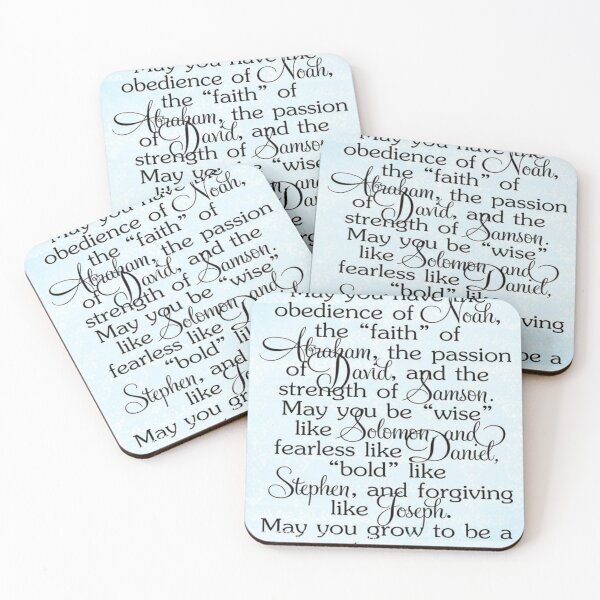 May you have the
obedience of Noah,
the “faith” of
Abraham, the passion
of David, and the
strength of Samson.
May you “wise”
and
obedience of Noah,
the “faith” of
Abraham, the passion
of David, and the
strength of Samson.
May you be “wise”
like Solomon and
fearless like Daniel,
“bold”
forgiving
be a
May you
obedience of Noah,
the “faith” of
Abraham, the passion
of David, and the
strength of Samson.
May you be “wise”
like Solomon and
fearless like
“bold”
Stephen, and
like
May you grow
May you have the
obedience of Noah,
the “faith” of
Abraham, the passion
of David, and the
strength of Samson.
May you be “wise”
like Solomon and
fearless like Daniel,
“bold” like
Stephen, and forgiving
like Joseph.
May you grow to be a